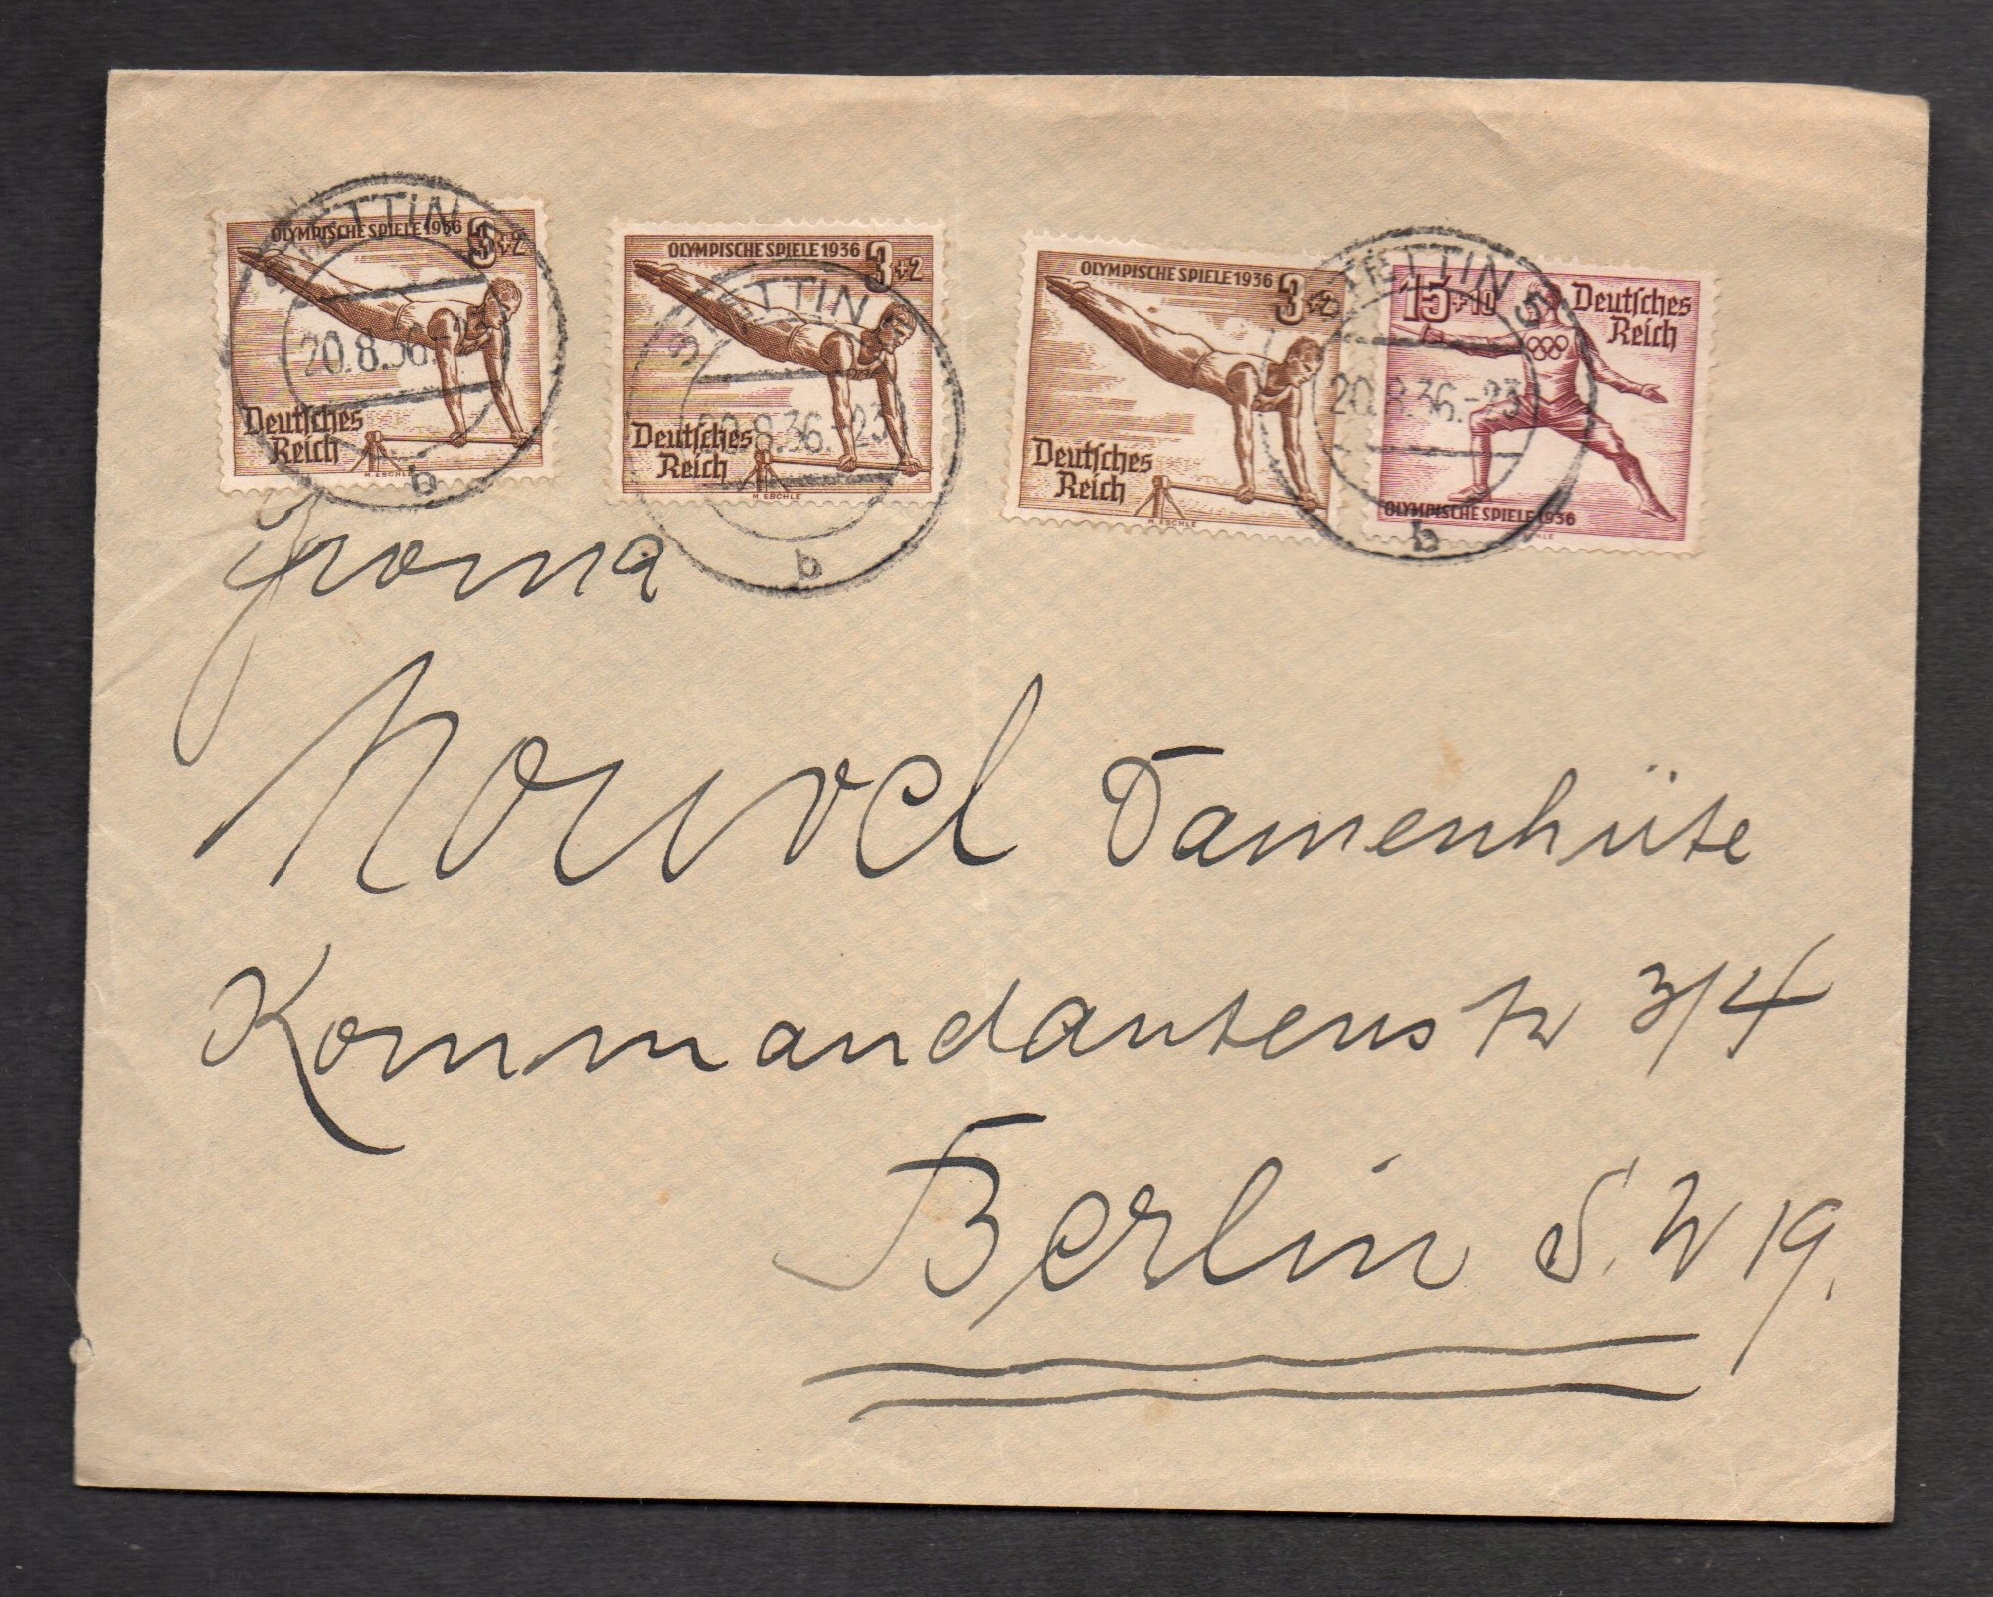 OLYMPISCHE SPIELE 1936 3+2
Deutsches
Reich
M. ESCHLE
STETTIN
20.8.36
b
OLYMPISCHE SPIELE 1936 3+2
Deutsches
Reich
M. ESCHLE
STETTIN
20.8.36.-23
b
OLYMPISCHE SPIELE 1936 3+2
Deutsches
Reich
M. ESCHLE
15+10 Deutsches
Reich
OLYMPISCHE SPIELE 1936
STETTIN 5
20.8.36.-23
b
Damenhüte
Kommandantenstr 3/4
Berlin S.W 19.